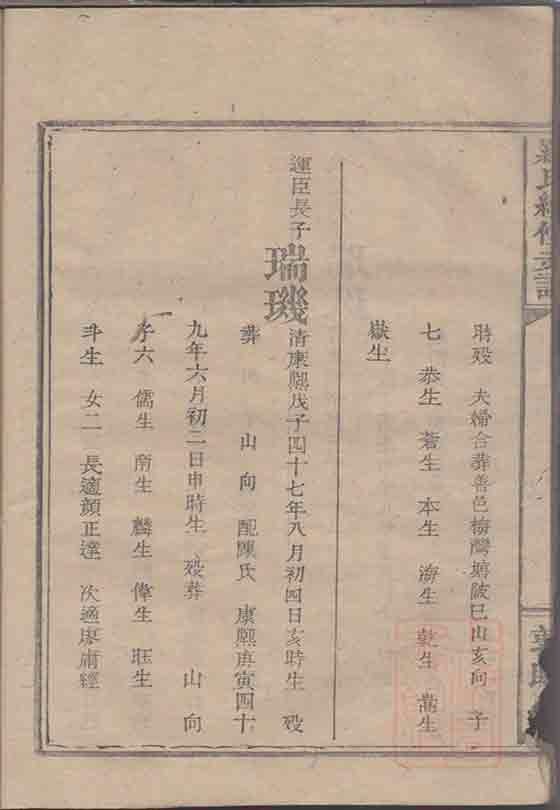 氏續修支譜
時歿 夫婦合葬善邑梅灣塘陂巳山亥向 子
七 恭生 蒼生 本生 濤生 乾生 喬生
嶽生
運臣長子
瑞璣
清康熙戊子四十七年八月初四日亥時生 歿
葬 山 向 配陳氏 康熙庚寅四十
九年六月初二日申時生 歿葬 山 向
子六 儒生 南生 麟生 偉生 旺生
斗生 女二 長適顏正達 次適廖甫經